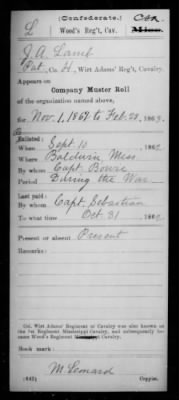 (Confederate.)
L Wood's Reg't, Cav. Miss.
J. A. Lamb
Pat., Co. H, Wirt Adams' Reg't, Cavalry.
Appears on
Company Muster Roll
of the organization named above,
for Nov. 1, 1862 to Feb 28, 1863.
Enlisted:
When Sept 10, 186
Where Baldwin Miss
By whom Capt Bowie
Period During the War
Last paid:
By whom Capt. Sebastian
To what time Oct 31, 186
Present or absent Present
Remarks:
Col. Wirt Adams' Regiment of Cavalry was also known as
the 1st Regiment Mississippi Cavalry, and subsequently became
Wood's Regiment Mississippi Cavalry.
Book mark:
M Lenard
(642) Copyist.